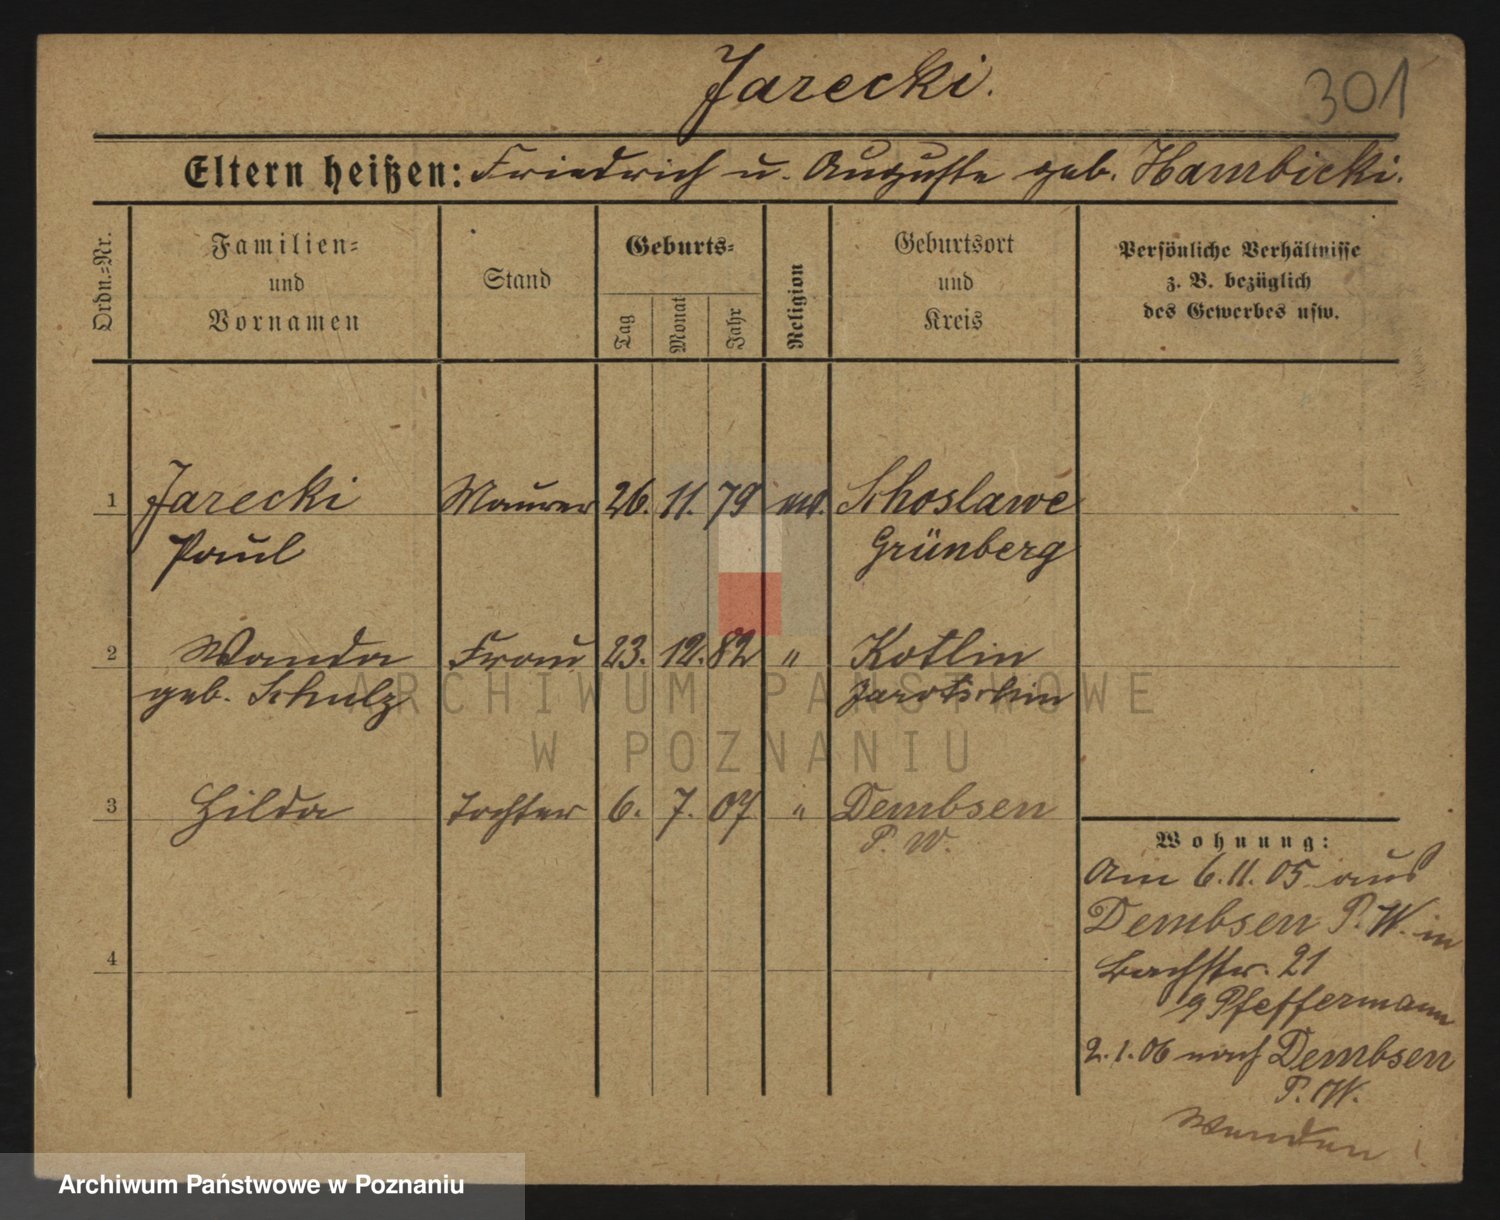 Jarecki.
301
Eltern heißen: Friedrich u. Auguste geb. Hambicki.
Ordn.-Nr.
Familien-
und
Vornamen
Stand
Geburts-
Tag
Monat
Jahr
Religion
Geburtsort
und
Kreis
Persönliche Verhältnisse
z. B. bezüglich
des Gewerbes usw.
1 Jarecki Maurer 26. 11. 79 Schoslawe
Paul Grünberg
2 Wanda Frau 23. 12. 82 " Kotlin
geb. Schulz Jarotschin
3 Hilda Tochter 6. 7. 07 " Dembsen
P. W.
4
Wohnung:
Am 6.11.05 aus
Dembsen P. W. in
Bachstr. 21
Pfeffermann
2.1.06 nach Dembsen
P. W.
Wenden !
ARCHIWUM PAŃSTWOWE
W POZNANIU
Archiwum Państwowe w Poznaniu